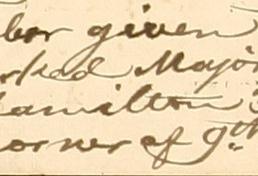 ber given
rked Major
Hamilton
orner of 9th